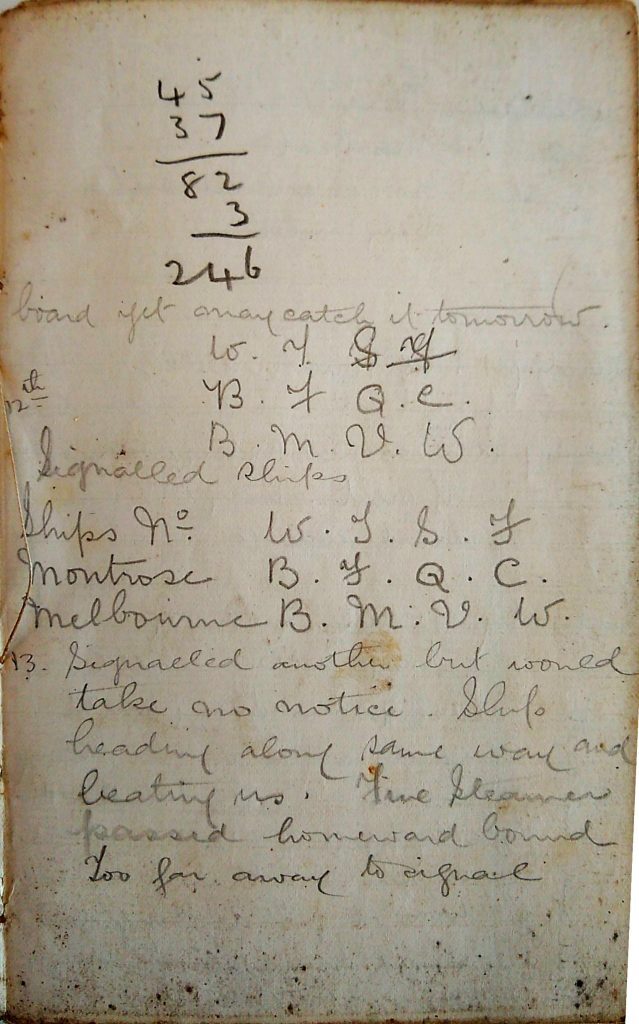 45
37
82
3
246
board yet may catch it tomorrow.
W. T. S F
12th B. F Q. C.
B. M. V. W.
Signalled ships
Ships No. W. T. S. F
Montrose B. F. Q. C.
Melbourne B. M. V. W.
13. Signalled another but would
take no notice. Ship
heading along same way and
beating us. Fine Steamer
passed homeward bound
Too far away to signal